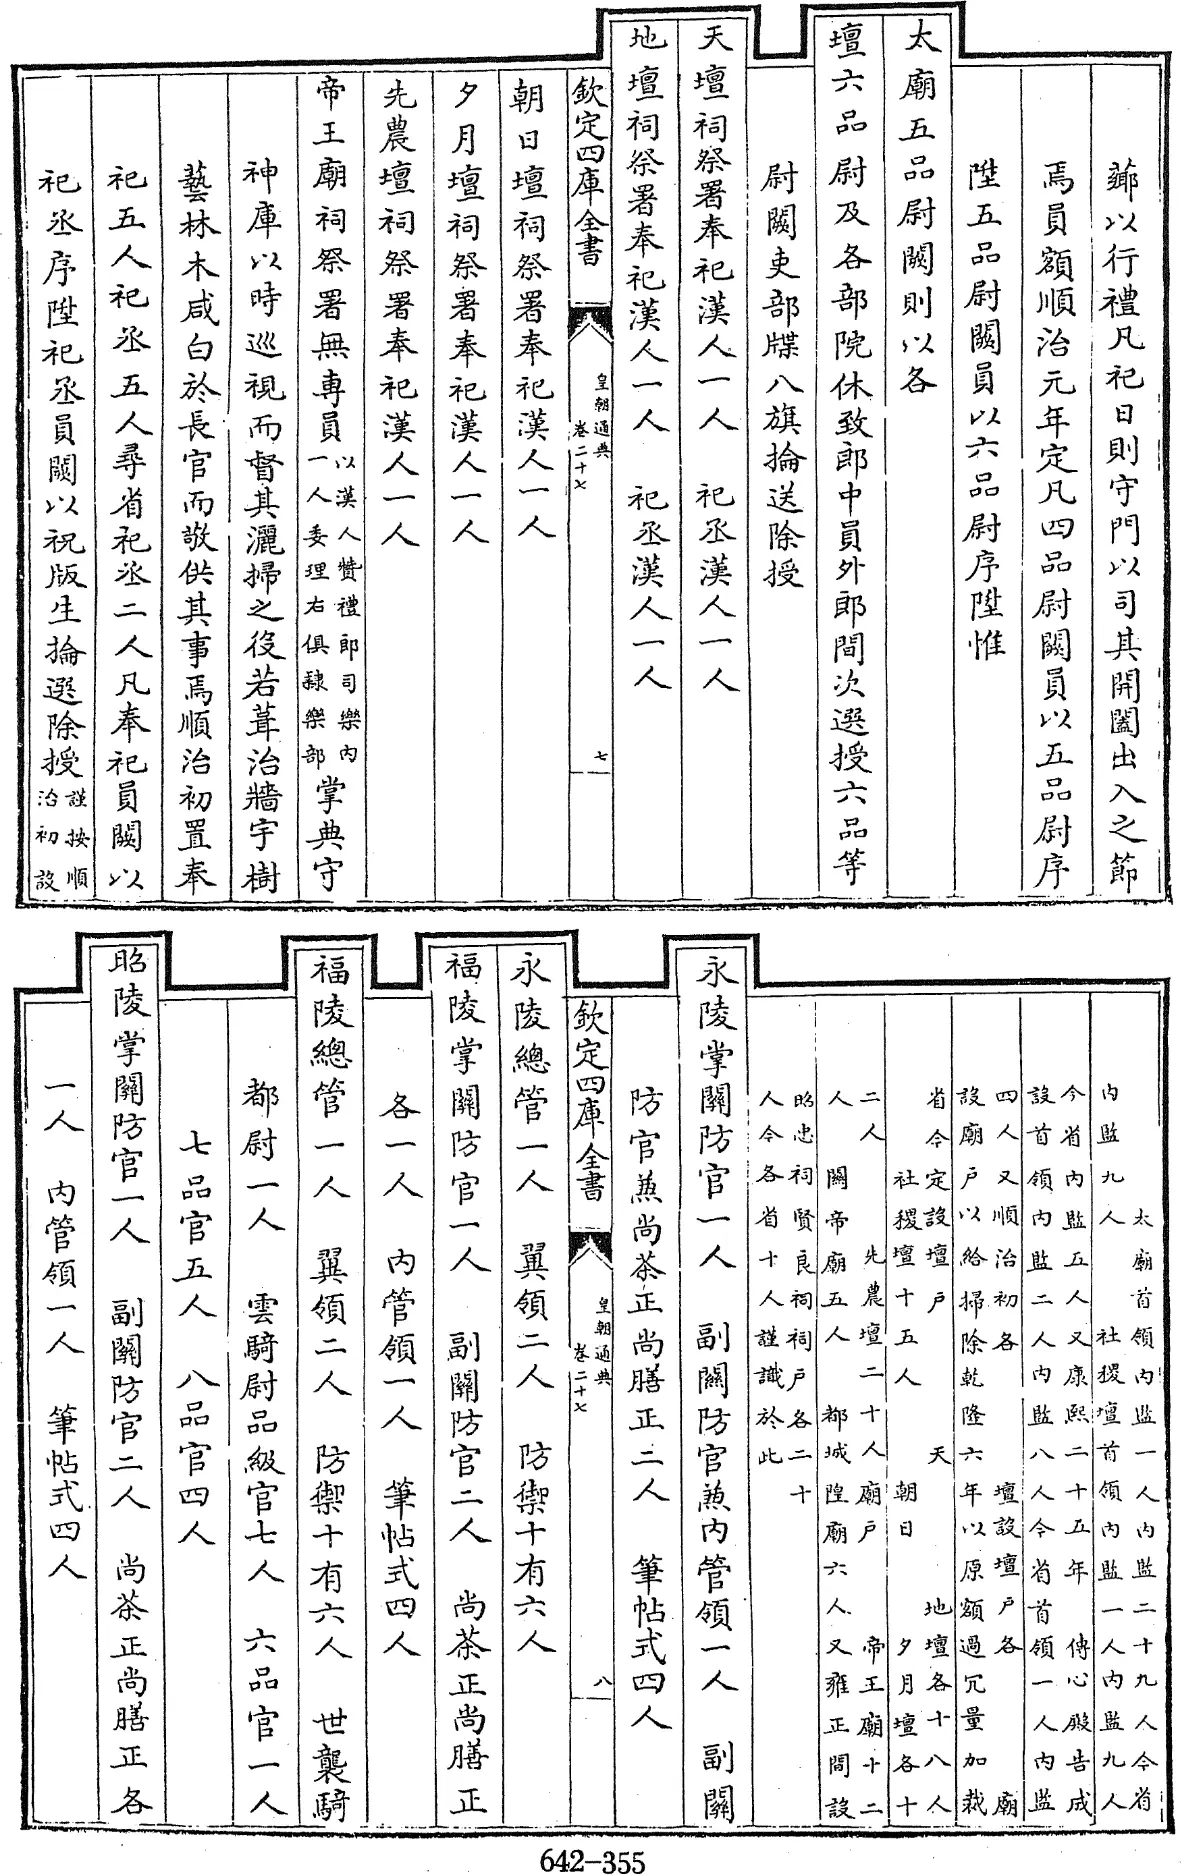 薌以行禮凡祀日則守門以司其開闔出入之節
焉員額順治元年定凡四品尉闕員以五品尉序
陞五品尉闕員以六品尉序陞惟
太廟五品尉闕則以各
壇六品尉及各部院休致郎中員外郎間次選授六品等
尉闕吏部牒八旗掄送除授
天壇祠祭署奉祀漢人一人 祀丞漢人一人
地壇祠祭署奉祀漢人一人 祀丞漢人一人
欽定四庫全書 皇朝通典 卷二十七 七
朝日壇祠祭署奉祀漢人一人
夕月壇祠祭署奉祀漢人一人
先農壇祠祭署奉祀漢人一人
帝王廟祠祭署無專員以漢人贊禮郎司樂內一人委理右俱隸樂部掌典守
神庫以時巡視而督其灑掃之役若葺治牆宇樹
藝林木咸白於長官而敬供其事焉順治初置奉
祀五人祀丞五人尋省祀丞二人凡奉祀員闕以
祀丞序陞祀丞員闕以祝版生掄選除授謹按順治初設
太廟首領內監一人內監二十九人今省
內監九人 社稷壇首領內監一人內監九人
今省內監五人又康熙二十五年 傳心殿告成
設首領內監二人內監八人今省首領一人內監
四人又順治初各 壇設壇戶各 廟
設廟戶以給掃除乾隆六年以原額過冗量加裁
省今定設壇戶 天 地壇各十八人
社稷壇十五人 朝日 夕月壇各十
二人 先農壇二十人廟戶 帝王廟十二
人 關帝廟五人 都城隍廟六人又雍正間設
昭忠祠賢良祠祠戶各二十
人今各省十人謹識於此
永陵掌關防官一人 副關防官兼內管領一人 副關
防官兼尚茶正尚膳正二人 筆帖式四人
欽定四庫全書 皇朝通典 卷二十七 八
永陵總管一人 翼領二人 防禦十有六人
福陵掌關防官一人 副關防官二人 尚茶正尚膳正
各一人 內管領一人 筆帖式四人
福陵總管一人 翼領二人 防禦十有六人 世襲騎
都尉一人 雲騎尉品級官七人 六品官一人
七品官五人 八品官四人
昭陵掌關防官一人 副關防官二人 尚茶正尚膳正各
一人 內管領一人 筆帖式四人
642-355